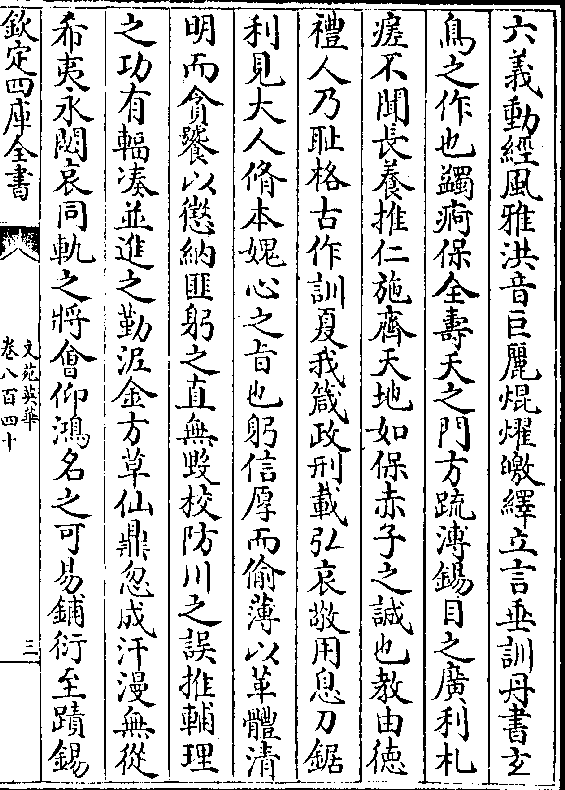 六義動經風雅洪音巨麗焜燿皦繹立言垂訓丹書玄
鳥之作也蠲痾保全壽夭之門方䟽溥錫目之廣利札
瘥不聞長養推仁施齊天地如保赤子之誠也教由徳
禮人乃耻格古作訓夏我箴政刑載弘哀敬用息刀鋸
利見大人脩本媿心之旨也躬信厚而偷薄以革體清
明而貪饕以懲納匪躬之直無毁校防川之誤推輔理
之功有輻凑並進之勤泥金方草仙鼎忽成汗漫無從
希夷永閟哀同軌之將㑹仰鴻名之可易鋪衍至賾錫
欽定四庫全書
文苑英華
卷八百四十
三